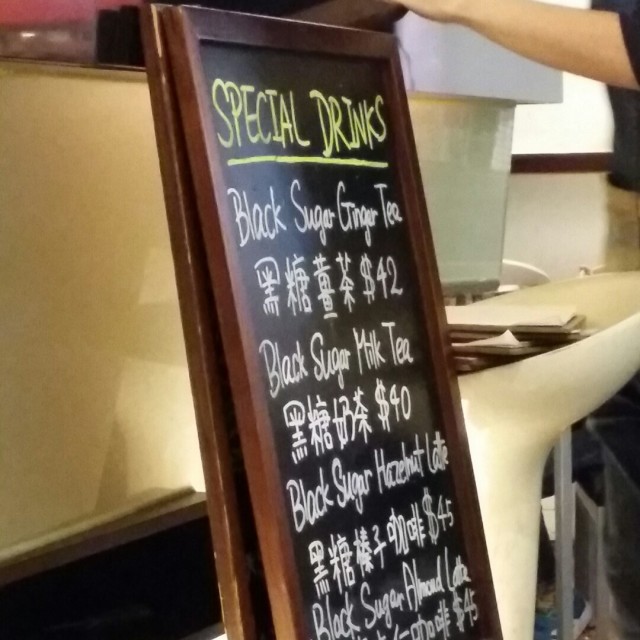 SPECIAL DRINKS
Black Sugar Ginger Tea
黑糖薑茶 $42
Black Sugar Milk Tea
黑糖奶茶 $40
Black Sugar Hazelnut Latte
黑糖榛子咖啡 $45
Black Sugar Almond Latte
咖啡 $45